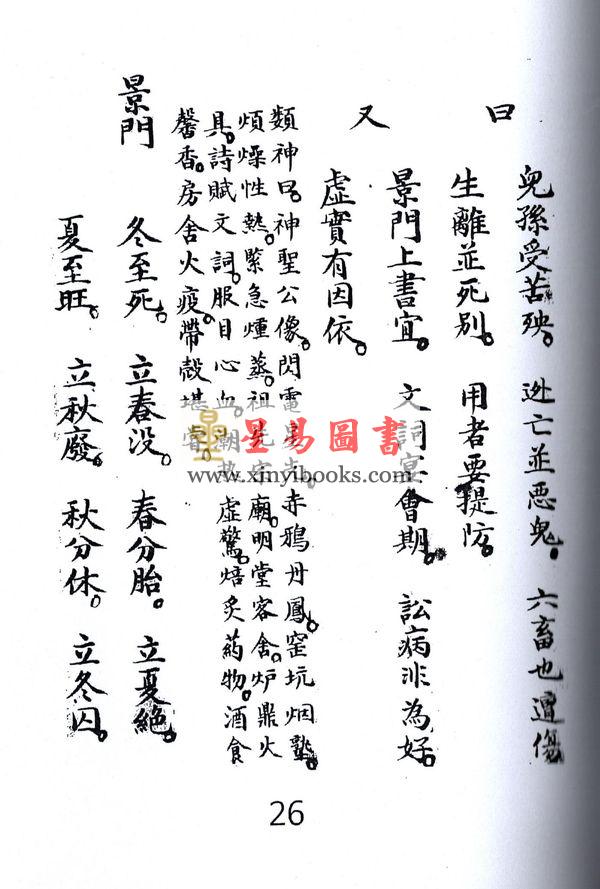 兒孫受苦殃。 逃亡並惡鬼。 六畜也遭傷
曰
生離並死別。 用者要提防。
景門上書宜。 文詞宴會期。 訟病非為好。
又
虛實有因依。
類神曰。神聖公像。閃電 赤鴉丹鳳。窑坑烟
煩燥性熱。緊急煙蒸。祖先宗廟。明堂客舍。炉鼎火
具。詩賦文詞。服目心血。潮 虛驚。焙炙药物。酒食
馨香。房舍火疫。帶殼堪
景門
冬至死。 立春没。 春分胎。 立夏絕。
夏至旺。 立秋廢。 秋分休。 立冬囚。
星易圖書
www.xinyibooks.com
26